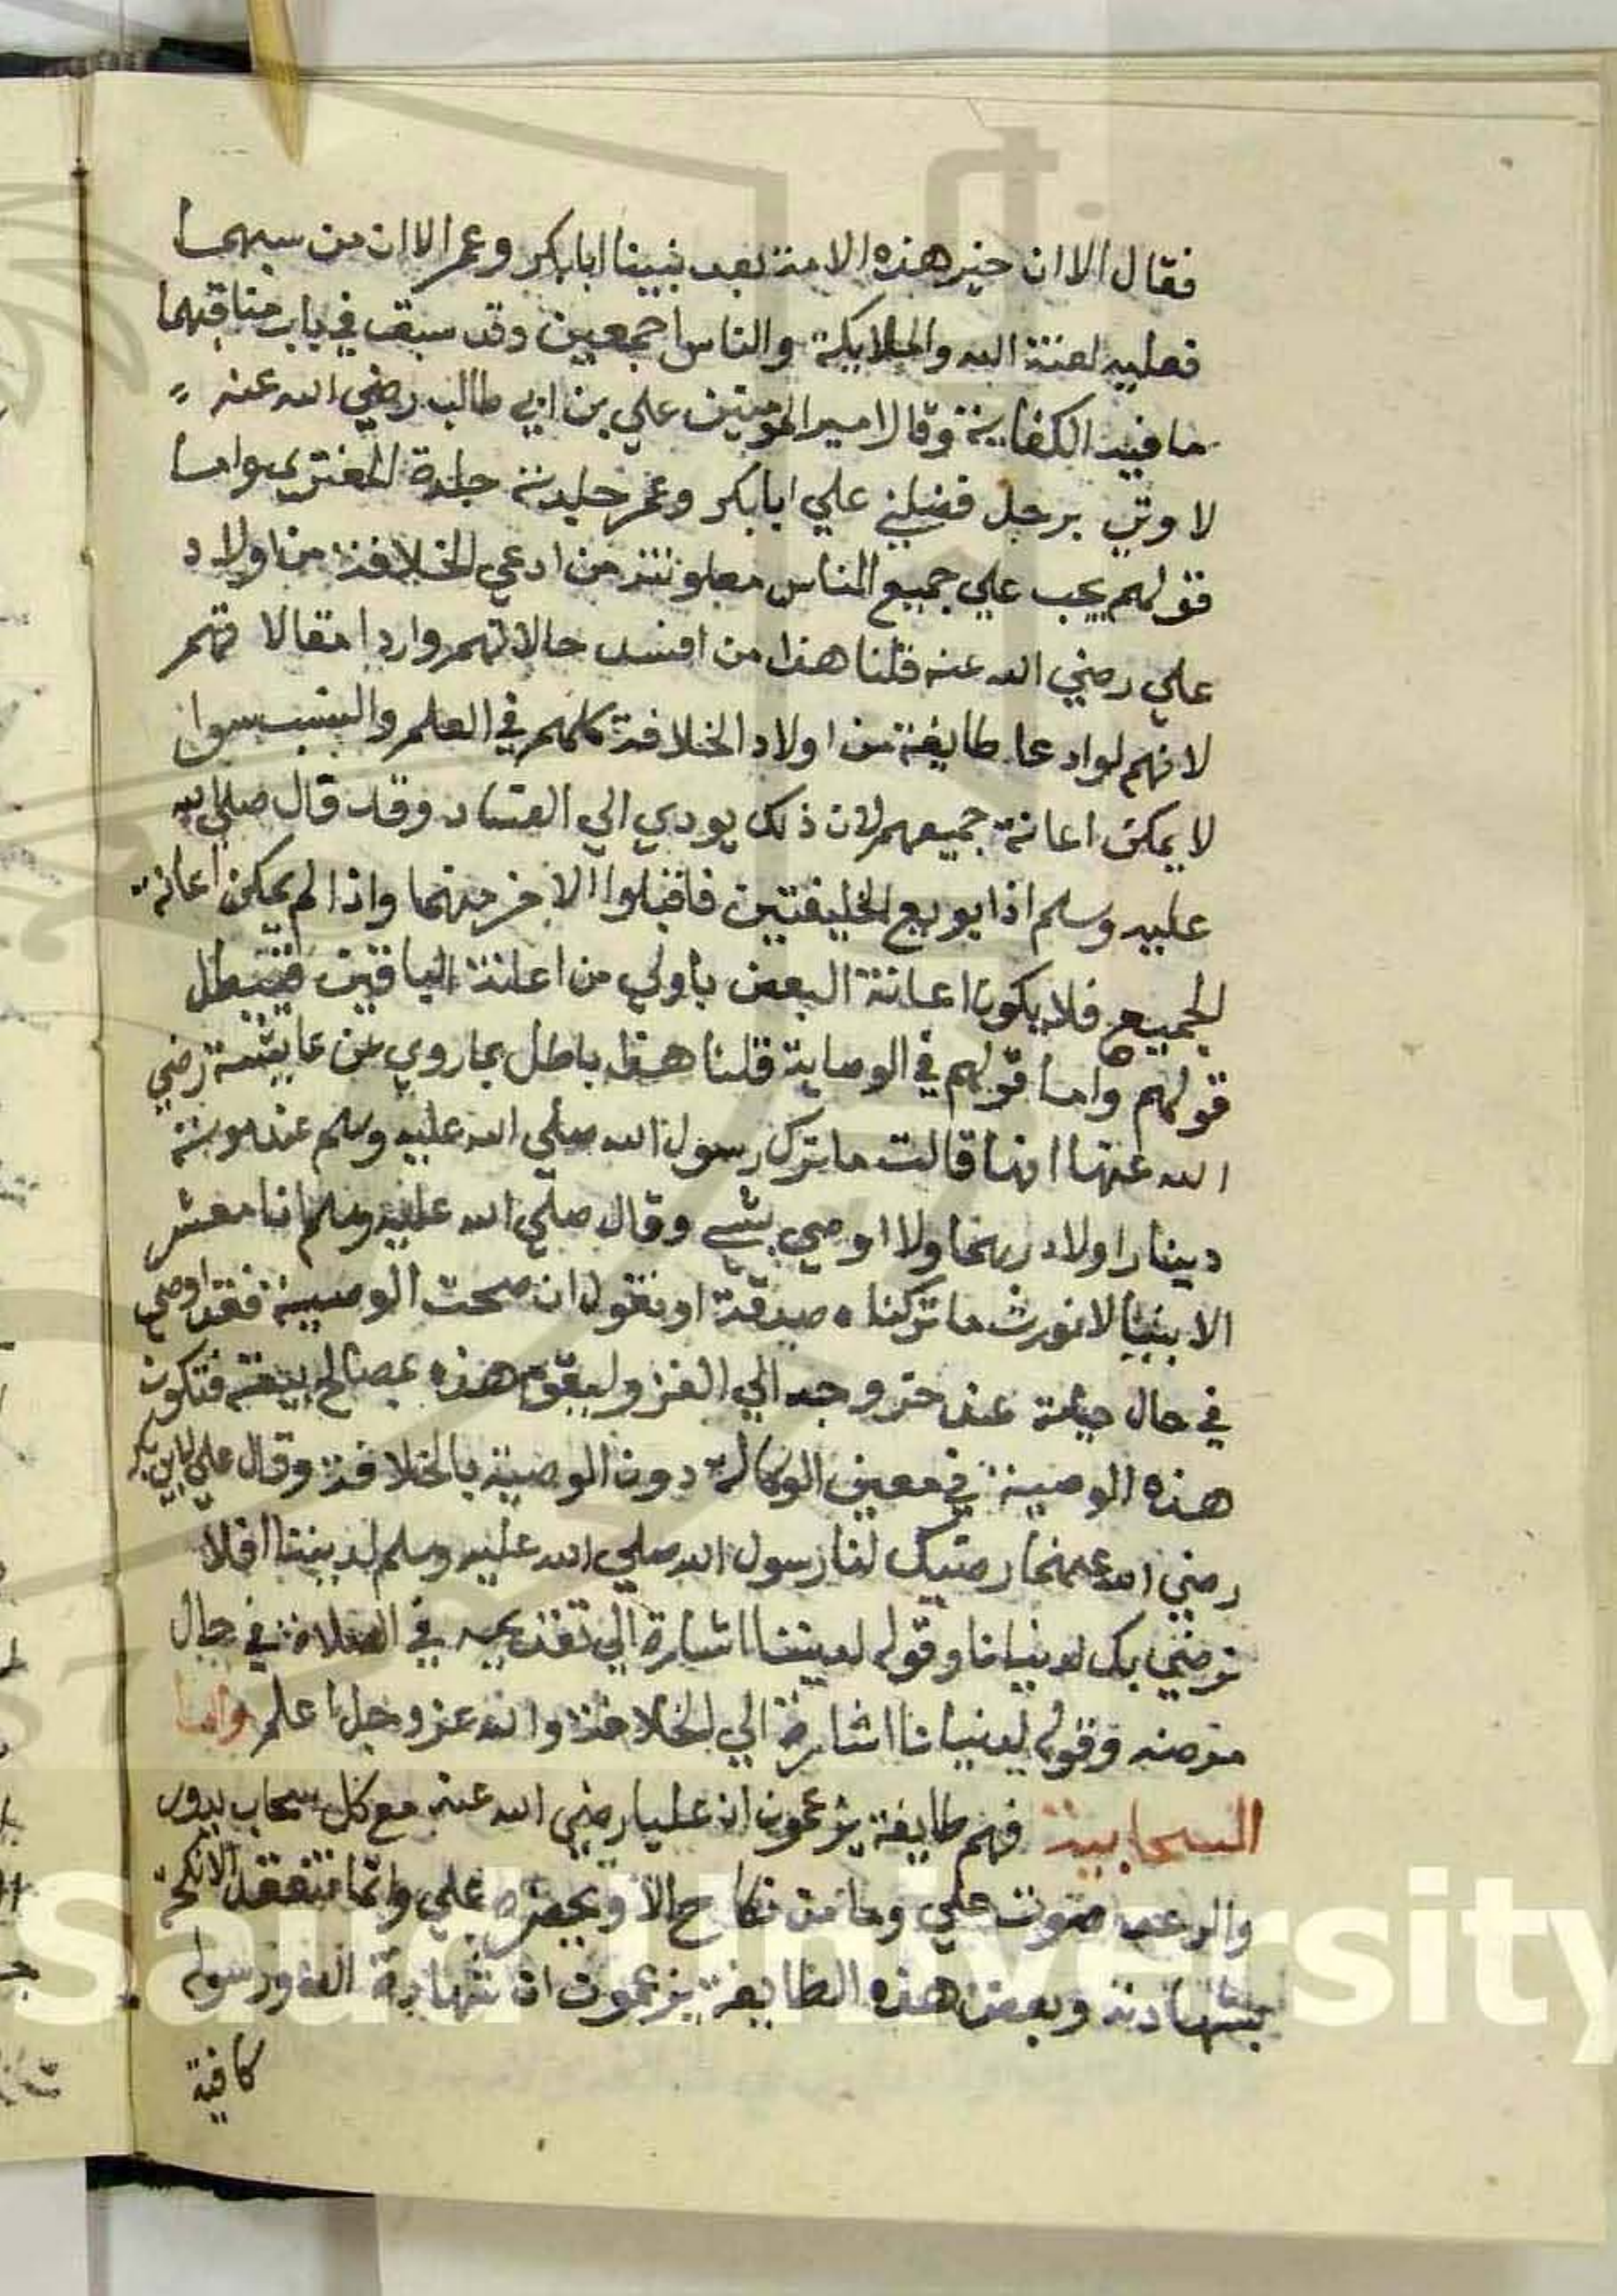 فقال الا ان خير هذه الامة بعد نبينا ابابكر وعمر الا ان من سبهما
فعليه لعنة الله والملايكة والناس اجمعين وقد سبق في باب مناقبهما
ما فيه الكفاية وقال امير المومنين علي بن ابي طالب رضي الله عنه
لا وتي برجل فضلني علي ابابكر وعمر جلدته جلدة المفتري واما
قولهم يجب علي جميع الناس معاونة من ادعي الخلافة من اولاد
علي رضي الله عنه قلنا هذا من افسد حالاتهم واردا مقالاتهم
لانهم لو ادعا طايفة من اولاد الخلافة كلهم في العلم والنسب سوا
لا يمكن اعانة جميعهم لان ذلك يودي الي الفساد وقد قال صلي الله
عليه وسلم اذا بويع الخليفتين فاقتلوا الاخر منهما واذا لم يمكن اعانة
الجميع فلا يكون اعانة البعض باولي من اعانة الباقين فتبطل
قولهم واما قولهم في الوصاية قلنا هذا باطل بما روي عن عايشة رضي
الله عنها انها قالت ما ترك رسول الله صلي الله عليه وسلم عند موته
دينارا ولا درهما ولا اوصي بشي وقال صلي الله عليه وسلم انا معشر
الانبيا لا نورث ما تركناه صدقة او نقول ان صحت الوصية فقد اوصي
في حال حياته عند خروجه الي الغزو ليقوم هذه بمصالح بيته فتكون
هذه الوصية في معين الوكالة دون الوصية بالخلافة وقال علي لابي بكر
رضي الله عنهما رضيك لنا رسول الله صلي الله عليه وسلم لديننا افلا
نرضي بك لدنيانا وقوله لديننا اشارة الي تقديمه في الصلاة في حال
مرضه وقوله لدنيانا اشارة الي الخلافة والله عز وجل اعلم واما
السحابية فهم طايفة يزعمون ان عليا رضي الله عنه مع كل سحاب يدور
والرعد صوت علي وما من نكاح الا ويحضره علي وانما تنعقد الانكحة
بشهادته وبعض هذه الطايفة يزعمون ان شهادة الله ورسوله
كافية
Saud University